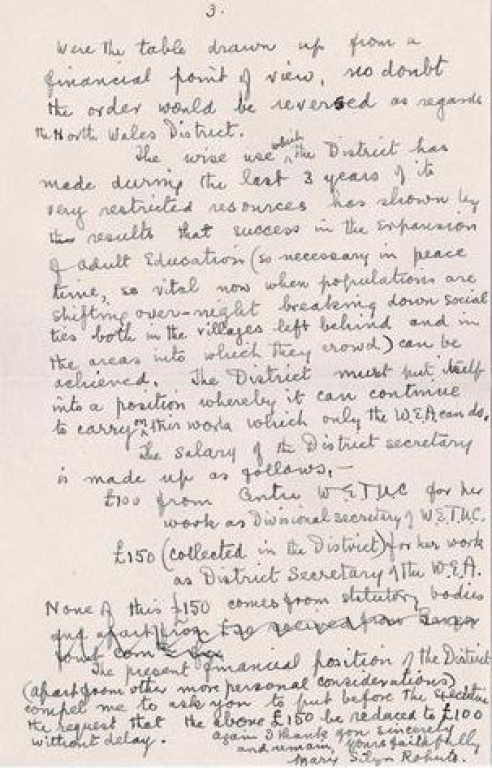 3.
Were the table drawn up from a
financial point of view, no doubt
the order would be reversed as regards
the North Wales District.
The wise use which the District has
made during the last 3 years of its
very restricted resources has shown by
results that success in the expansion
of Adult Education (so necessary in peace
time, so vital now when populations are
shifting over-night breaking down social
ties both in the villages left behind and in
the areas into which they crowd) can be
achieved. The District must put itself
into a position whereby it can continue
to carry on this work which only the W.E.A can do.
The salary of the District secretary
is made up as follows,-
£100 from Centre W.E.T.U.C for her
work as Divisional secretary of W.E.T.U.C.
£150 (collected in the District) for her work
as District Secretary of the W.E.A.
None of this £150 comes from statutory bodies
and apart from £50 received from Bangor
joint com
The present financial position of the District
(apart from other more personal considerations)
compel me to ask you to put before the Executive
the request that the above £150 be reduced to £100
without delay. Again I thank you sincerely
and remain, yours faithfully
Mary Silyn Roberts.